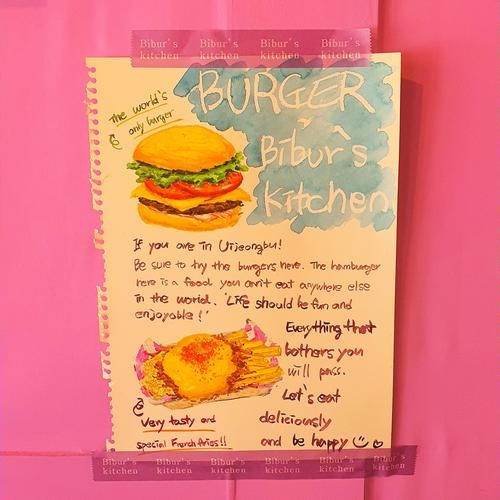 Bibur's kitchen Bibur's kitchen Bibur's kitchen Bibur's kitchen
BURGER
Bibur's
kitchen
The world's
only burger
If you are in Uijeongbu!
Be sure to try the burgers here. The hamburger
here is a food you can't eat anywhere else
in the world. 'Life should be fun and
enjoyable!'
Everything that
bothers you
will pass.
Let's eat
deliciously
and be happy
Very tasty and
special French fries!!
Bibur's kitchen Bibur's kitchen Bibur's kitchen Bibur's kitchen Bibur's kitchen